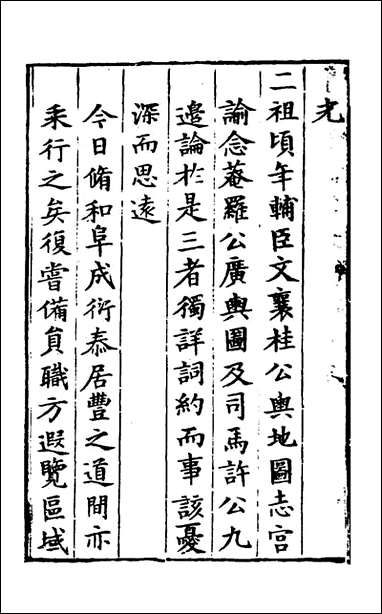 光
二祖頃年輔臣文襄桂公輿地圖志宮
諭念菴羅公廣輿圖及司馬許公九
邉論扵是三者獨詳詞約而事該憂
深而思遠
今日脩和阜成衍泰居豐之道間亦
乘行之矣復嘗備員職方遐覽區域